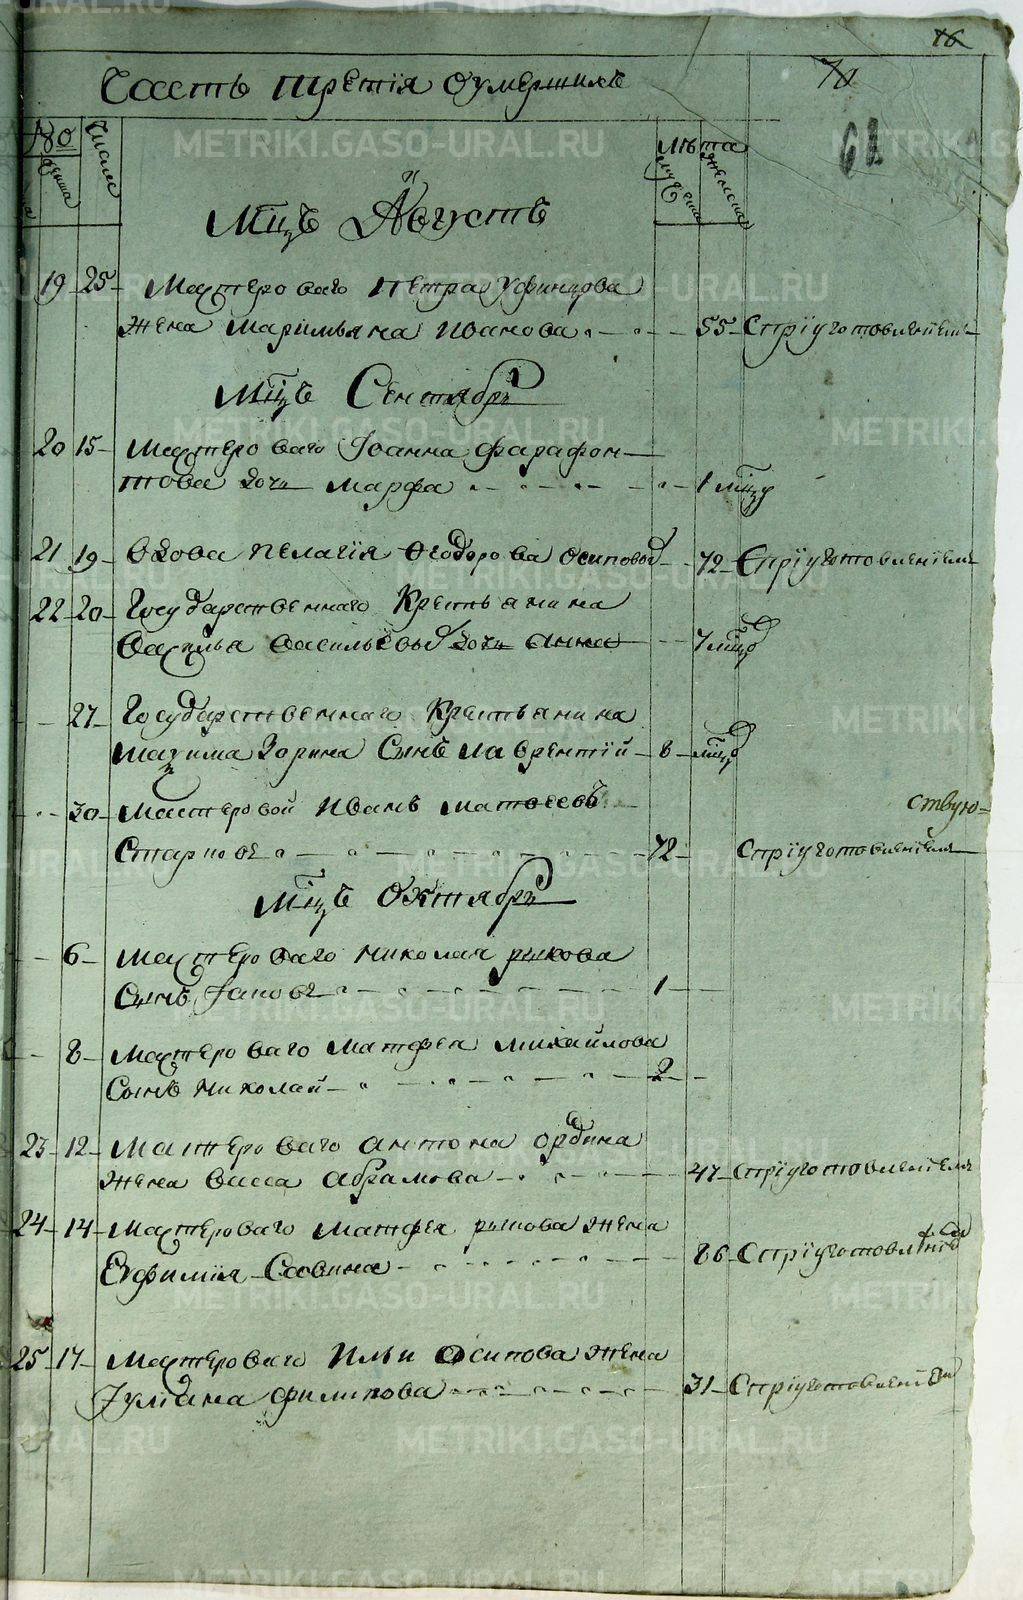 16
70
Часть третія оумершихъ
61
No
Число
Лѣта
женска
мужеска
женска
Мцъ Августъ
19 25 Мастероваго Петра Уфинцова
жена Маримьяна Иванова 55 С приуготовленiемъ
Мцъ Сентябрь
20 15 Мастероваго Іоанна Фарафон-
това дочь Марфа 1 мцъ
21 19 Вдова Пелагія Феодорова Осиповой 72 С приуготовленiемъ
22 20 Государственнаго Крестьянина
Василья Васильевой дочь Анна 7 мцов
27 Государственнаго Крестьянина
Максима Зорина сынъ Лаврентiй 8 мцов
30 Мастеровой Иванъ Матвеевъ
ствую-
Старковъ 72 С приуготовленiемъ
Мцъ Октябрь
6 Мастероваго Николая Рыкова
сынъ Іаковъ 1
8 Мастероваго Матфея Михайлова
сынъ Николай 2
23 12 Мастероваго Антона Ордина
жена Васса Абрамова 47 С приуготовленiемъ
24 14 Мастероваго Матфея Рыкова жена
Евфимiя Савина 86 С приуготовленiе
25 17 Мастероваго Ильи Осипова жена
Іулiана Филипова 31 С приуготовленiем
METRIKI.GASO-URAL.RU